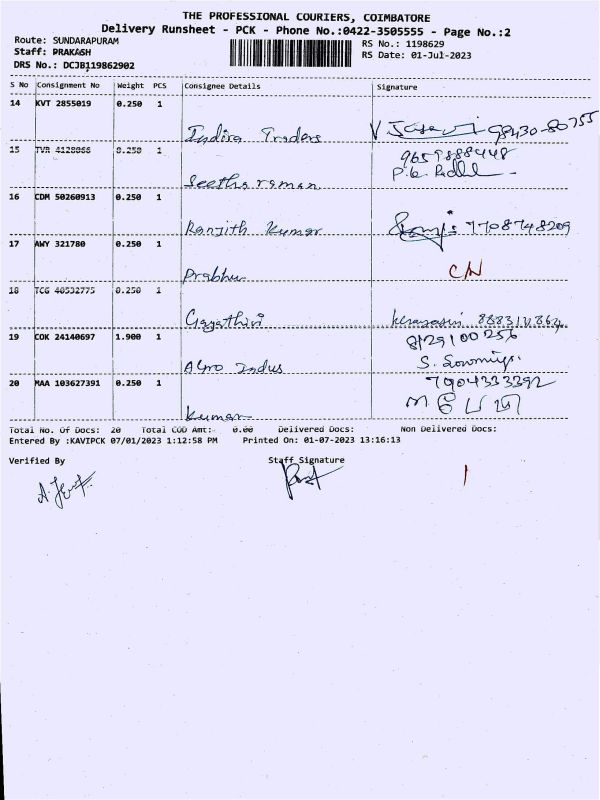 THE PROFESSIONAL COURIERS, COIMBATORE
Delivery Runsheet - PCK - Phone No.:0422-3505555 - Page No.:2
Route: SUNDARAPURAM
RS No.: 1198629
Staff: PRAKASH
RS Date: 01-Jul-2023
DRS No.: DCJB119862902
S No Consignment No Weight PCS Consignee Details Signature
14 KVT 2855019 0.250 1
Indira Traders 98430-80755
15 TVR 4128068 0.250 1 9659888448
Seetharaman
16 CDM 50260913 0.250 1
Ranjith Kumar 7708748209
17 AWY 321780 0.250 1
Prabhu
18 TCG 40532775 0.250 1
Gayathiri
19 COK 24140697 1.900 1 8129100256
Indus S. Sowmiya.
20 MAA 103627391 0.250 1 7904333392
Kumar
Total No. Of Docs: 20 Total COD Amt: 0.00 Delivered Docs: Non Delivered Docs:
Entered By :KAVIPCK 07/01/2023 1:12:58 PM Printed On: 01-07-2023 13:16:13
Verified By Staff Signature